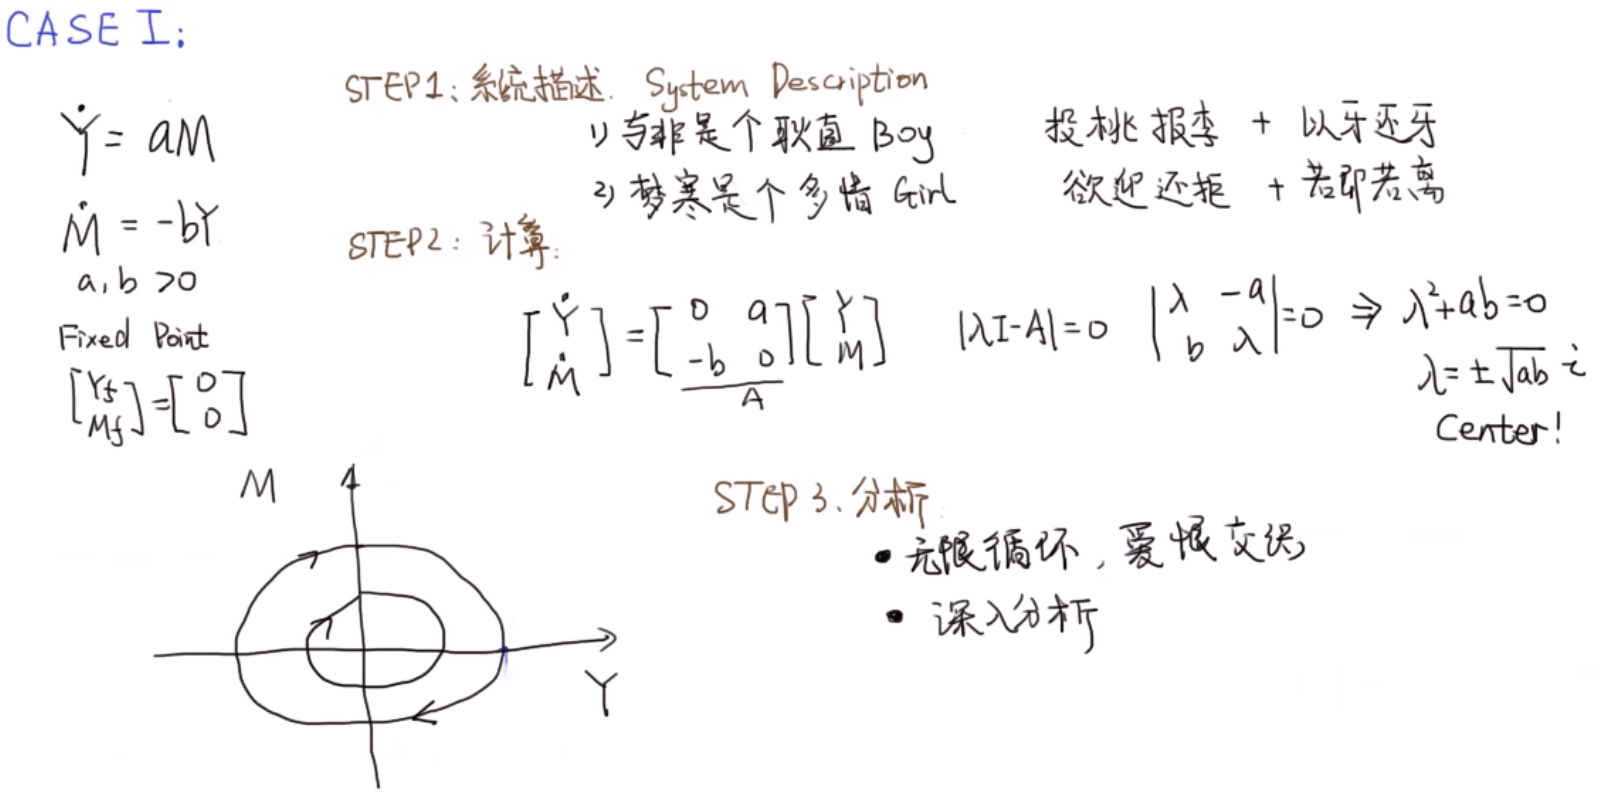 CASE I:
Ẏ = aM
Ṁ = -bY
a, b >0
Fixed Point
[Yf Mf] = [0 0]
STEP1: 系统描述. System Description
1) 与非是个耿直 Boy 投桃报李 + 以牙还牙
2) 梦寒是个多情 Girl 欲迎还拒 + 若即若离
STEP2: 计算:
[Ẏ Ṁ] = [0 a -b 0] [Y M] |λI-A|=0 |λ -a b λ|=0 ⇒ λ²+ab=0
A
λ= ±√ab i
Center!
M
Y
STEP 3. 分析.
• 无限循环, 爱恨交织
• 深入分析